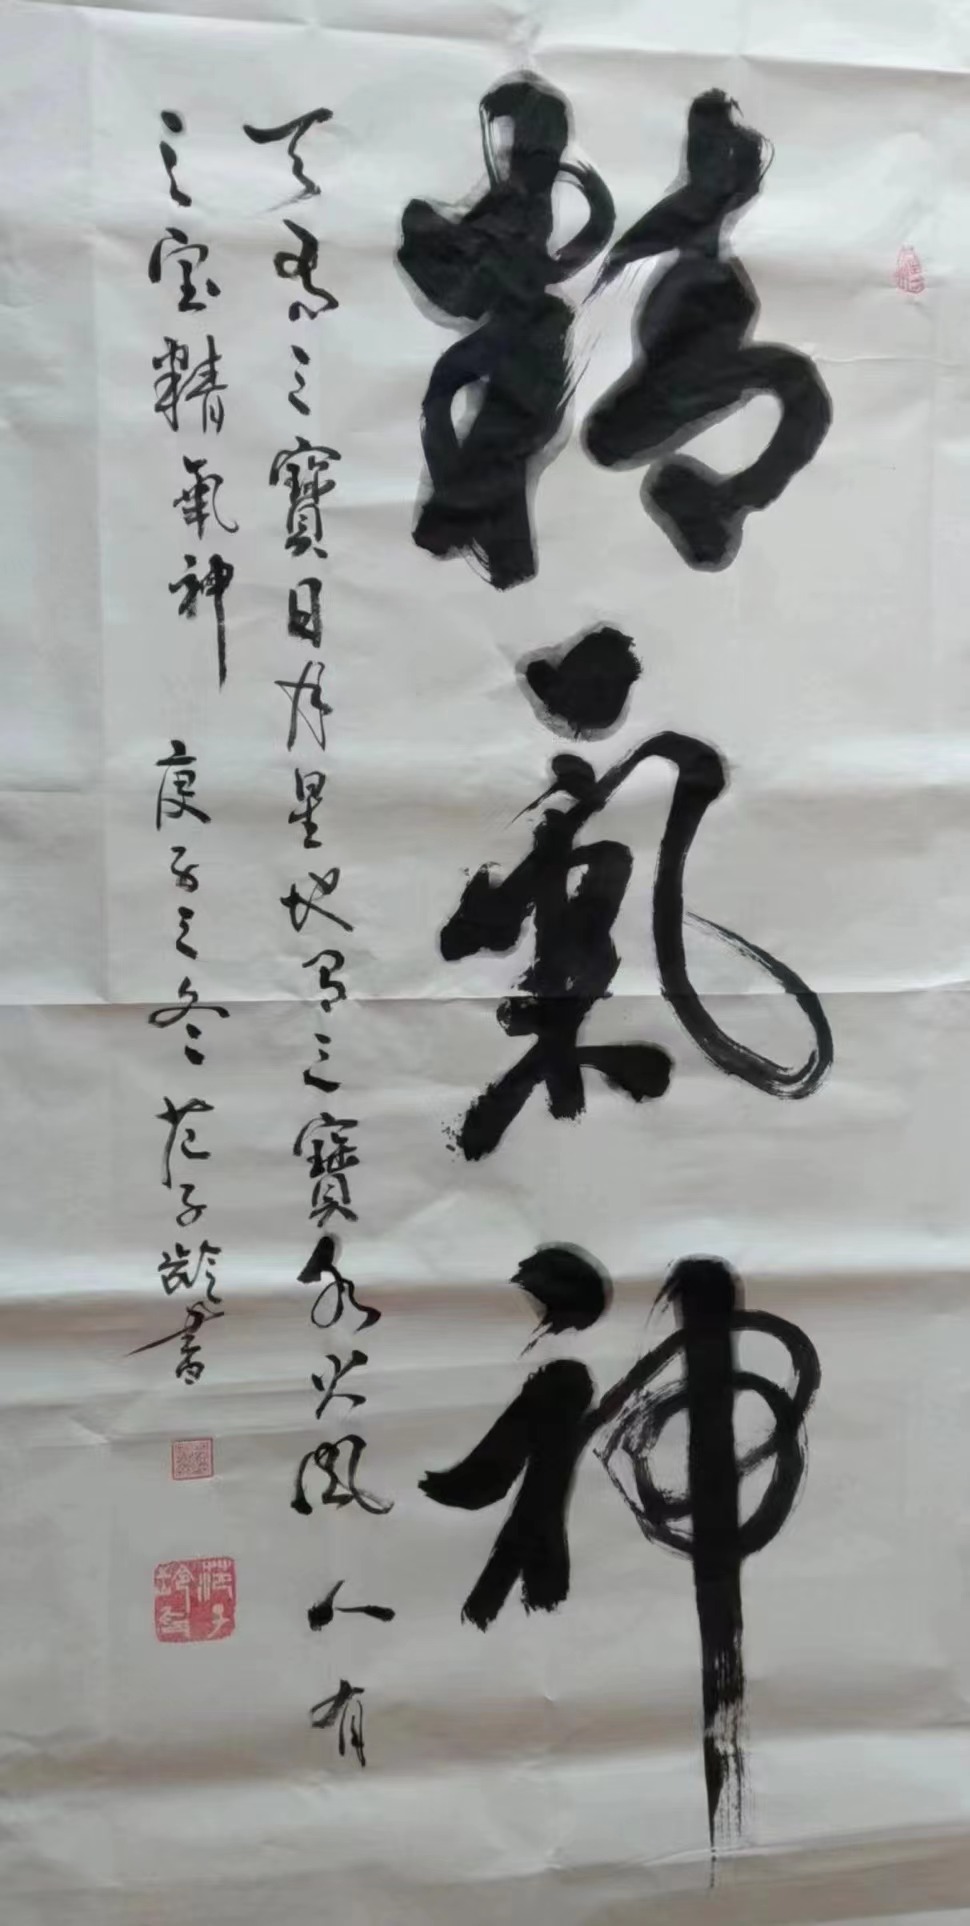 精氣神
天有三寶日月星地有三寶水火風人有
三宝精氣神 庚子之冬 范子龄書